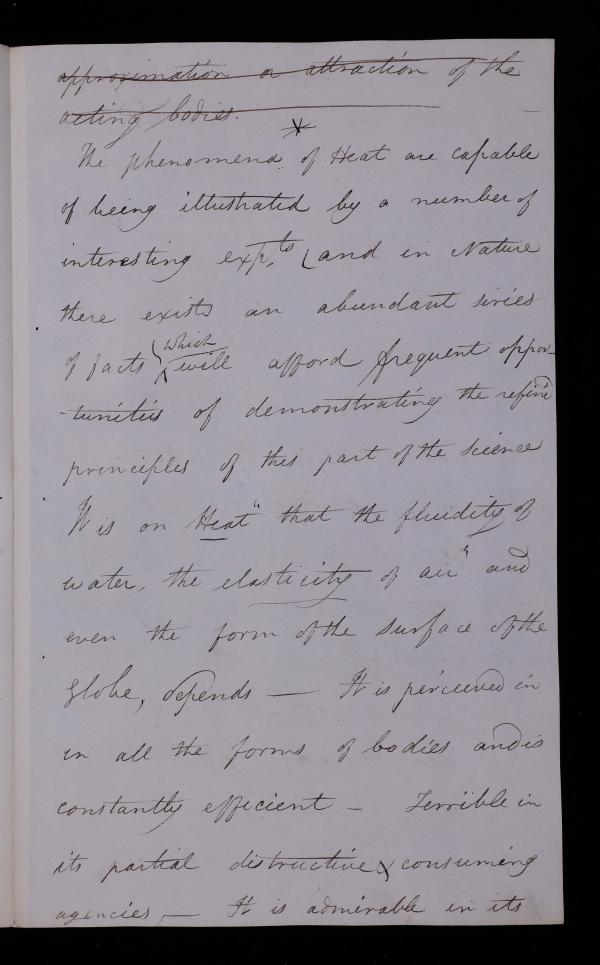 approximation or attraction of the
acting bodies.
The phenomena of Heat are capable
of being illustrated by a number of
interesting exp.ts and in Nature
there exists an abundant series
of facts which will afford frequent oppor-
-tunities of demonstrating the refind
principles of this part of the science
It is on Heat" that the fluidity of
water, the elasticity of air" and
even the form of the surface of the
Globe, depends — It is perceived in
in all the forms of bodies and is
constantly efficient – Terrible in
its partial distructive & consuming
agencies, — It is admirable in its